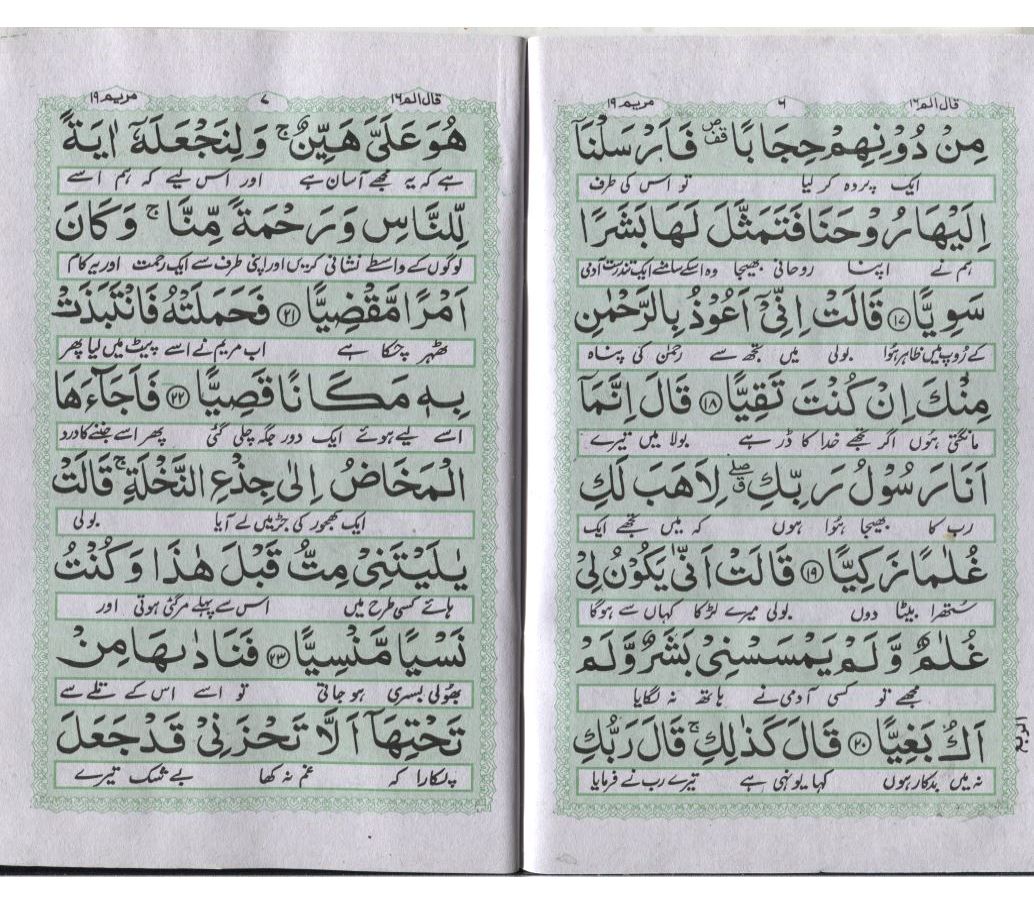 قال الم ۱۶
۶
مریم ۱۹
مِنْ دُوْنِهِمْ حِجَابًا ۪ۗ فَاَرْسَلْنَاۤ
ایک پردہ کر لیا تو اس کی طرف
اِلَیْهَا رُوْحَنَا فَتَمَثَّلَ لَهَا بَشَرًا
ہم نے اپنا روحانی بھیجا وہ اسکے سامنے ایک تندرست آدمی
سَوِیًّا ۝۱۷ قَالَتْ اِنِّیْۤ اَعُوْذُ بِالرَّحْمٰنِ
کے رُوپ میں ظاہر ہُوا بولی میں تجھ سے رحمٰن کی پناہ
مِنْكَ اِنْ كُنْتَ تَقِیًّا ۝۱۸ قَالَ اِنَّمَاۤ
مانگتی ہُوں اگر تجھے خدا کا ڈر ہے بولا میں تیرے
اَنَا رَسُوْلُ رَبِّكِ ۖۗ لِاَهَبَ لَكِ
رب کا بھیجا ہُوا ہوں کہ میں تجھے ایک
غُلٰمًا زَكِیًّا ۝۱۹ قَالَتْ اَنّٰی یَكُوْنُ لِیْ
سُتھرا بیٹا دوں بولی میرے لڑکا کہاں سے ہوگا
غُلٰمٌ وَّ لَمْ یَمْسَسْنِیْ بَشَرٌ وَّ لَمْ
مجھے تو کسی آدمی نے ہاتھ نہ لگایا
اَكُ بَغِیًّا ۝۲۰ قَالَ كَذٰلِكِ ۚ قَالَ رَبُّكِ
نہ میں بدکار ہوں کہا یونہی ہے تیرے رب نے فرمایا
قال الم ۱۶
۷
مریم ۱۹
هُوَ عَلَیَّ هَیِّنٌ ۚ وَ لِنَجْعَلَهٗۤ اٰیَةً
ہے کہ یہ مجھے آسان ہے اور اس لیے کہ ہم اسے
لِّلنَّاسِ وَ رَحْمَةً مِّنَّا ۚ وَ كَانَ
لوگوں کے واسطے نشانی کریں اور اپنی طرف سے ایک رحمت اور یہ کام
اَمْرًا مَّقْضِیًّا ۝۲۱ فَحَمَلَتْهُ فَانْتَبَذَتْ
ٹھہر چکا ہے اب مریم نے اسے پیٹ میں لیا پھر
بِهٖ مَكَانًا قَصِیًّا ۝۲۲ فَاَجَآءَهَا
اسے لیے ہوئے ایک دور جگہ چلی گئی پھر اسے جننے کا درد
الْمَخَاضُ اِلٰی جِذْعِ النَّخْلَةِ ۚ قَالَتْ
ایک کھجور کی جڑ میں لے آیا بولی
یٰلَیْتَنِیْ مِتُّ قَبْلَ هٰذَا وَ كُنْتُ
ہائے کسی طرح میں اس سے پہلے مرگئی ہوتی اور
نَسْیًا مَّنْسِیًّا ۝۲۳ فَنَادٰىهَا مِنْ
بھُولی بسری ہو جاتی تو اسے اس کے تلے سے
تَحْتِهَاۤ اَلَّا تَحْزَنِیْ قَدْ جَعَلَ
پکارا کہ غم نہ کھا بے شک تیرے